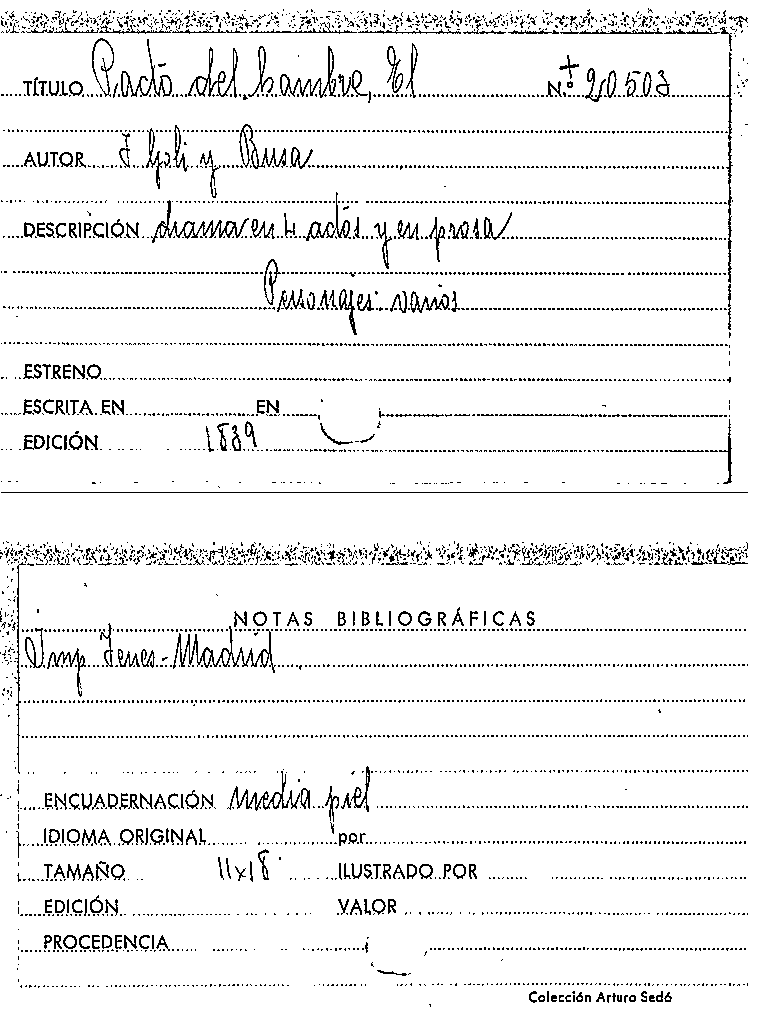 TÍTULO Pacto del hambre, El N.º + 20503
AUTOR J Goli y Busa
DESCRIPCIÓN drama en 4 actos y en prosa
Personajes: varios
ESTRENO
ESCRITA EN EN
EDICIÓN 1839
NOTAS BIBLIOGRÁFICAS
Imp Yenes - Madrid
ENCUADERNACIÓN media piel
IDIOMA ORIGINAL por
TAMAÑO 11x18 ILUSTRADO POR
EDICIÓN VALOR
PROCEDENCIA
Colección Arturo Sedó